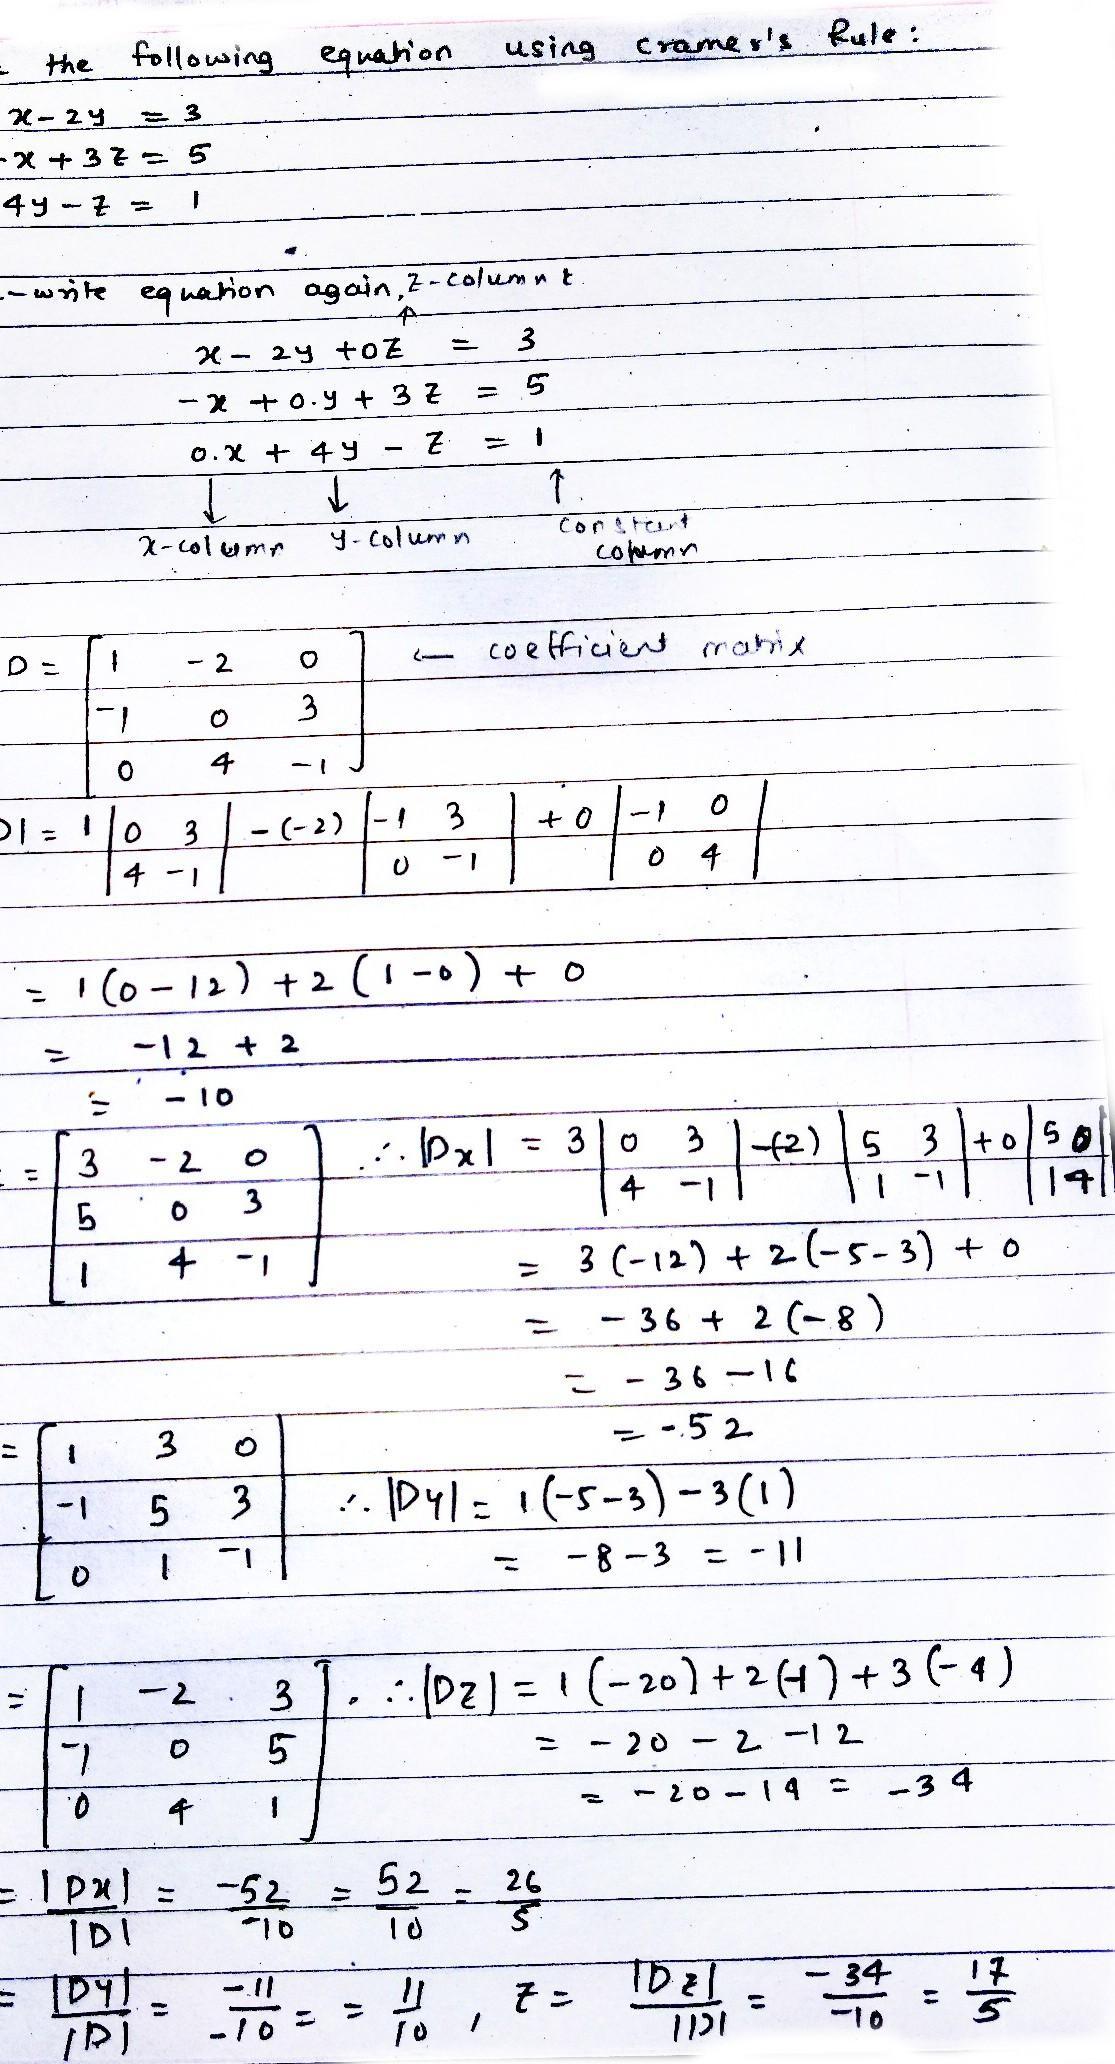 the following equation using cramer's Rule:
x - 2y = 3
-x + 3z = 5
4y - z = 1
write equation again, z-column
x - 2y + 0z = 3
-x + 0.y + 3z = 5
0.x + 4y - z = 1
x-column y-column constant column
D = [ 1 -2 0 ← coefficient matrix
-1 0 3
0 4 -1 ]
D| = 1 |0 3| -(-2) |-1 3| + 0 |-1 0|
|4 -1| |0 -1| |0 4|
= 1(0-12) + 2(1-0) + 0
= -12 + 2
= -10
= [ 3 -2 0 ] ∴ |Dx| = 3 |0 3| -(2) |5 3| + 0 |5 0|
5 0 3 |4 -1| |1 -1| |1 4|
1 4 -1
= 3(-12) + 2(-5-3) + 0
= -36 + 2(-8)
= -36 - 16
= -52
= [ 1 3 0
-1 5 3 ∴ |Dy| = 1(-5-3) - 3(1)
0 1 -1 ] = -8 - 3 = -11
= [ 1 -2 3 ] ∴ |Dz| = 1(-20) + 2(-1) + 3(-4)
-1 0 5 = -20 - 2 - 12
0 4 1 = -20 - 14 = -34
= |Dx|/|D| = -52/-10 = 52/10 = 26/5
= |Dy|/|D| = -11/-10 = = 11/10 , z = |Dz|/|D| = -34/-10 = 17/5